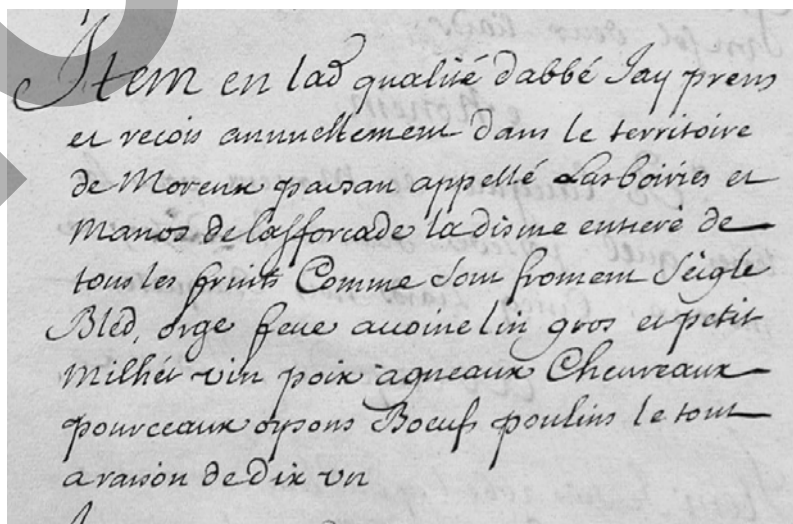 Item en lad qualité dabbé Jay prens
et recois annuellement dans le territoire
de Moreux paisan appellé Lasboiries et
Manos de lafforcade la disme entiere de
tous les fruits Comme sont froment seigle
Bled, orge feue auoine lin gros et petit
Milhet vin poix agneaux Cheureaux
pourceaux oysons Boeufs poulins le tout
a raison de dix un